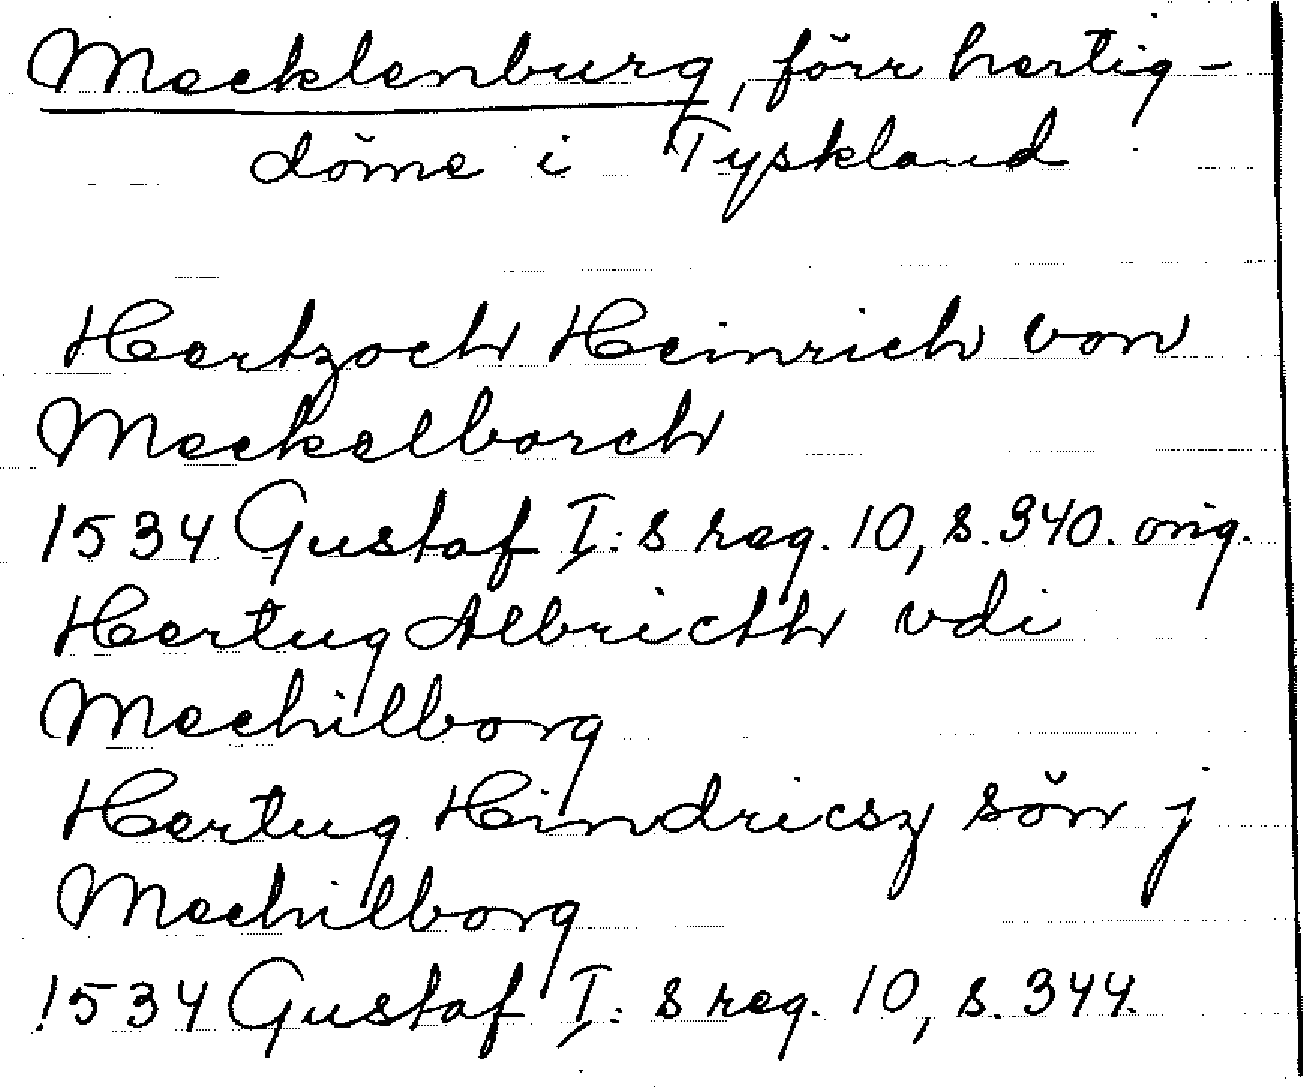 Mecklenburg, förr hertig-
döme i Tyskland
Hertzoch Heinrich von
Meckelborch
1534 Gustaf I:s reg. 10, s. 340. orig.
Hertug Albricth vdi
Mechilborg
Hertug Hindricsz sön j
Mechilborg
1534 Gustaf I:s reg. 10, s. 344.